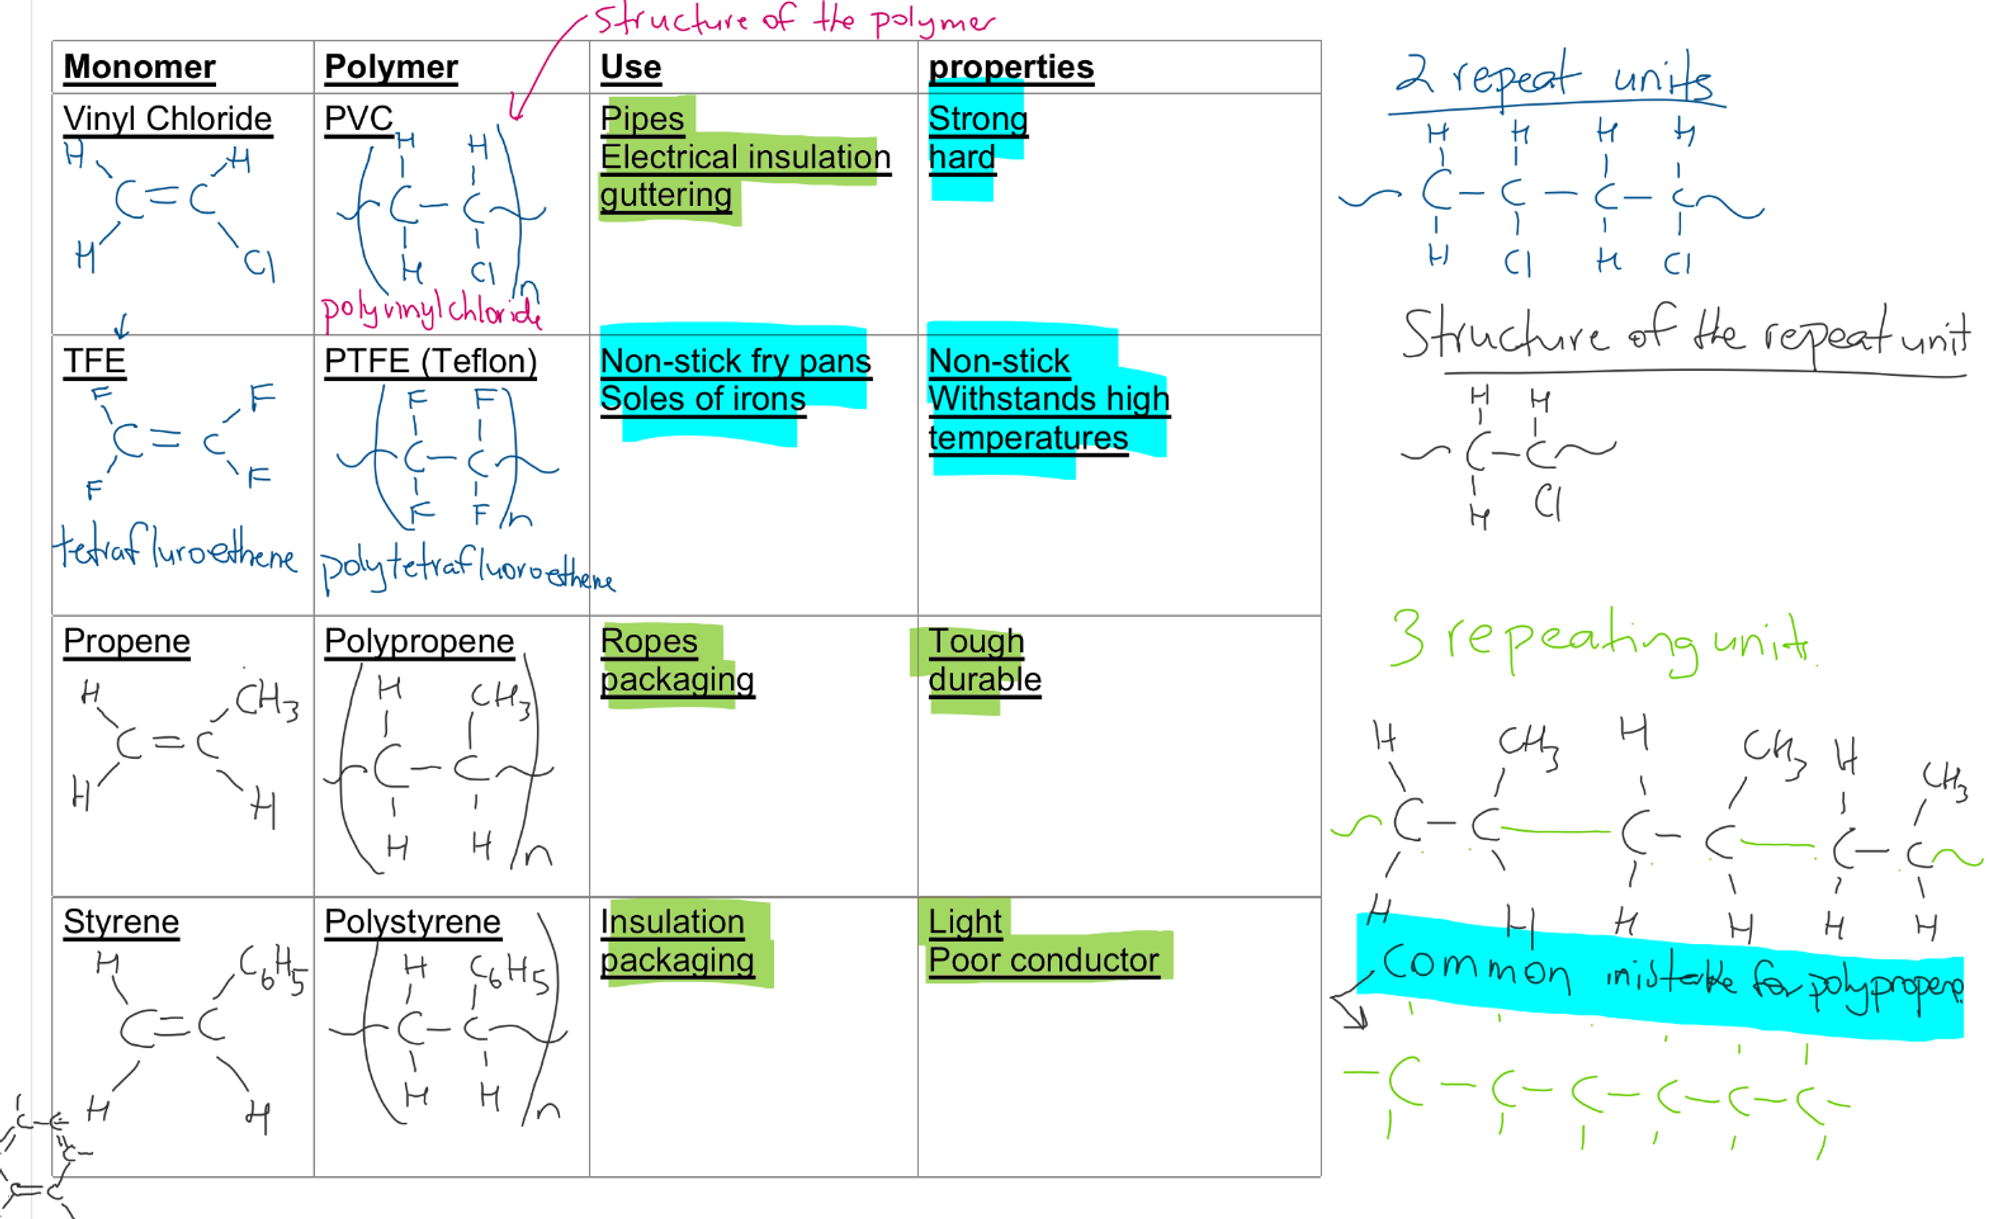 Structure of the polymer
Monomer
Polymer
Use
properties
Vinyl Chloride
H
H
C=C
H
Cl
PVC
H H
C-C
H Cl
n
polyvinylchloride
Pipes
Electrical insulation
guttering
Strong
hard
TFE
F
F
C=C
F
F
tetrafluroethene
PTFE (Teflon)
F F
C-C
F F
n
polytetrafluoroethene
Non-stick fry pans
Soles of irons
Non-stick
Withstands high
temperatures
Propene
H
CH3
C=C
H
H
Polypropene
H CH3
C-C
H H
n
Ropes
packaging
Tough
durable
Styrene
H
C6H5
C=C
H
H
Polystyrene
H C6H5
C-C
H H
n
Insulation
packaging
Light
Poor conductor
C-C
C-
C=C
2 repeat units
H H H H
C-C-C-C
H Cl H Cl
Structure of the repeat unit
H H
C-C
H Cl
3 repeating unit.
H CH3 H CH3 H CH3
C-C-C-C-C-C
H H H H H H
Common mistake for polypropene
-C-C-C-C-C-C-